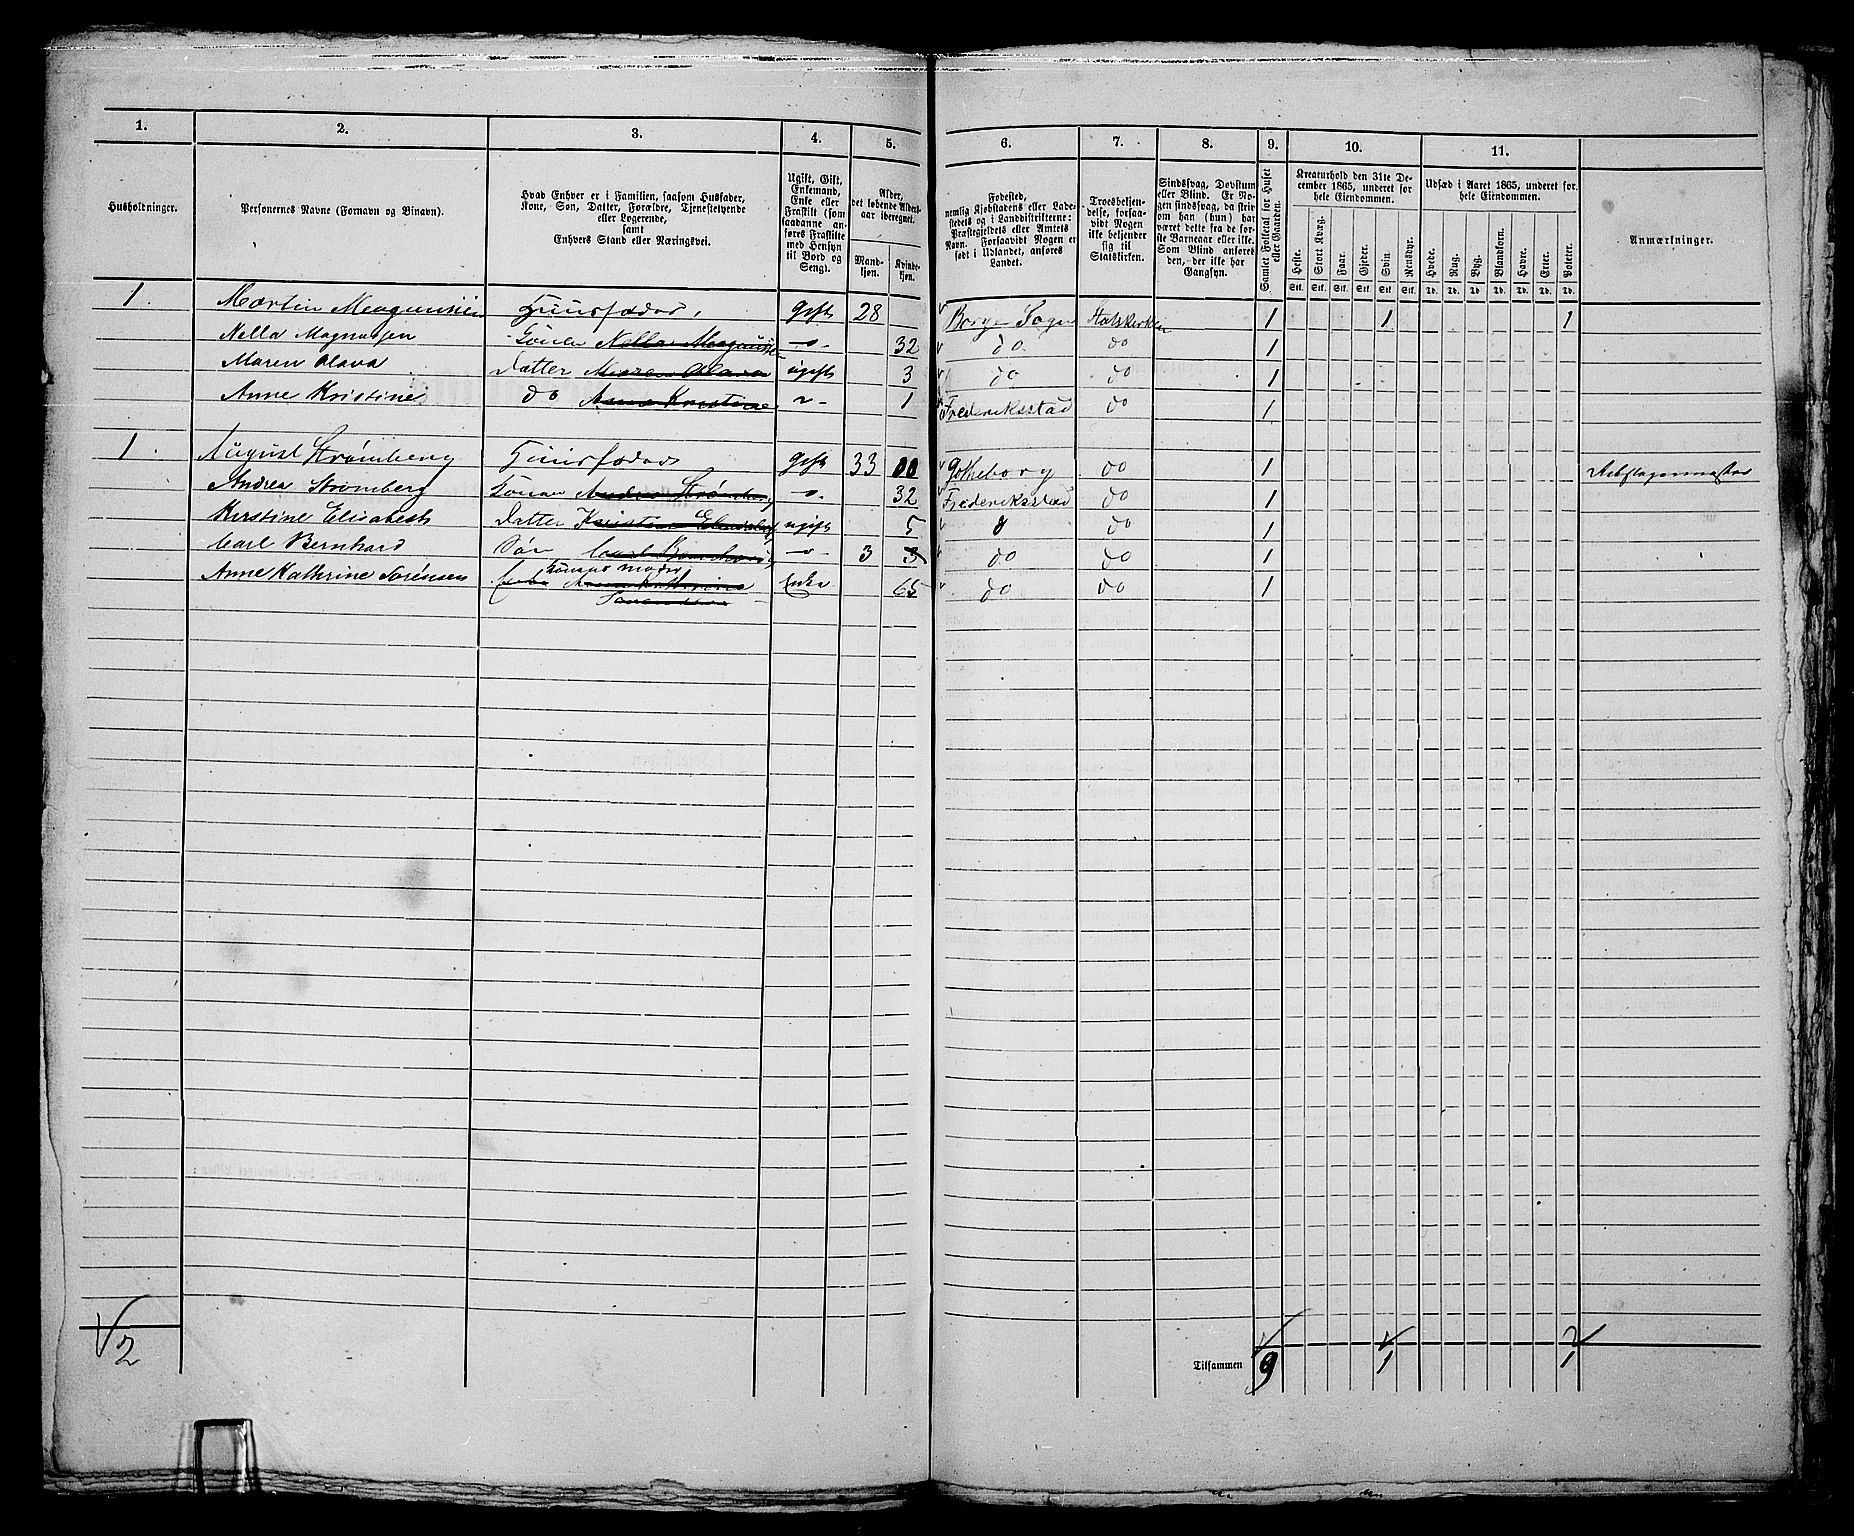 1. 2. 3. 4. 5. 6. 7. 8. 9. 10. 11.
Husholdninger.
Personernes Navne (Fornavn og Binavn).
Hvad Enhver er i Familien, saasom Husfader,
Kone, Søn, Datter, Forældre, Tjenestetyende
eller Logerende,
samt
Enhvers Stand eller Næringsvei.
Ugift, Gift,
Enkemand,
Enke eller
Fraskilt (som
saadanne an-
føres Fraskilte
med Hensyn
til Bord og
Seng).
Alder,
det løbende Alders-
aar iberegnet.
Mand-
kjøn.
Kvinde-
kjøn.
Fødested,
nemlig Kjøbstadens eller Lade-
stedets og i Landdistrikterne:
Præstegjeldets eller Amtets
Navn. Forsaavidt Nogen er
født i Udlandet, anføres
Landet.
Troesbekjen-
delse, forsaa-
vidt Nogen
ikke bekjender
sig til
Statskirken.
Sindssvag, Døvstum
eller Blind. Er No-
gen sindssvag, da skriv
om han (hun) har
været dette fra de før-
ste Barneaar eller ikke.
Som Blind anføres
den, der ikke har
Gangsyn.
Samlet Folketal for Huset
eller Gaarden.
Kreaturhold den 31te De-
cember 1865, underet for
hele Eiendommen.
Heste. Stort Kvæg. Faar. Gjeder. Svin. Rensdyr.
Stk. Stk. Stk. Stk. Stk. Stk.
Udsæd i Aaret 1865, underet for
hele Eiendommen.
Hvede. Rug. Byg. Blandkorn. Havre. Erter. Poteter.
Td. Td. Td. Td. Td. Td. Td.
Anmærkninger.
1. Martin Magnussen Huusfader, Gift 28 Borge Sogn Statskirken 1 1 1
Nella Magnusen Konen Nella Magnussen -o- 32 do do 1
Maren Olava Datter Maren Olava ugift 3 do do 1
Anne Kristine do Anne Kristine - 1 Frederiksstad do 1
1. August Strømberg Huusfader Gift 33 Gotheborg do 1
Andrea Strømberg Konen Andrea Strømberg -o- 32 Frederiksstad do 1
Kirstine Elisabeth Datter ugift 5 d do 1
Carl Bernhard Søn Carl Bernhard -o- 3 3 do do 1
Anne Kathrine Sørensen Konens moder Anne Kathrine Enke 65 do do 1
Sørensen
2 Tilsammen 9 1 1